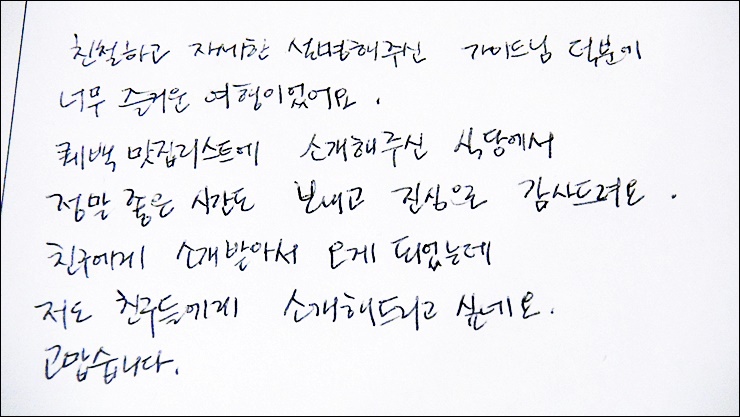 친절하고 자세한 설명해주신 가이드님 덕분에
너무 즐거운 여행이었어요.
퀘백 맛집리스트에 소개해주신 식당에서
정말 좋은 시간도 보내고 진심으로 감사드려요.
친구에게 소개받아서 오게 되었는데
저도 친구들에게 소개해드리고 싶네요.
고맙습니다.